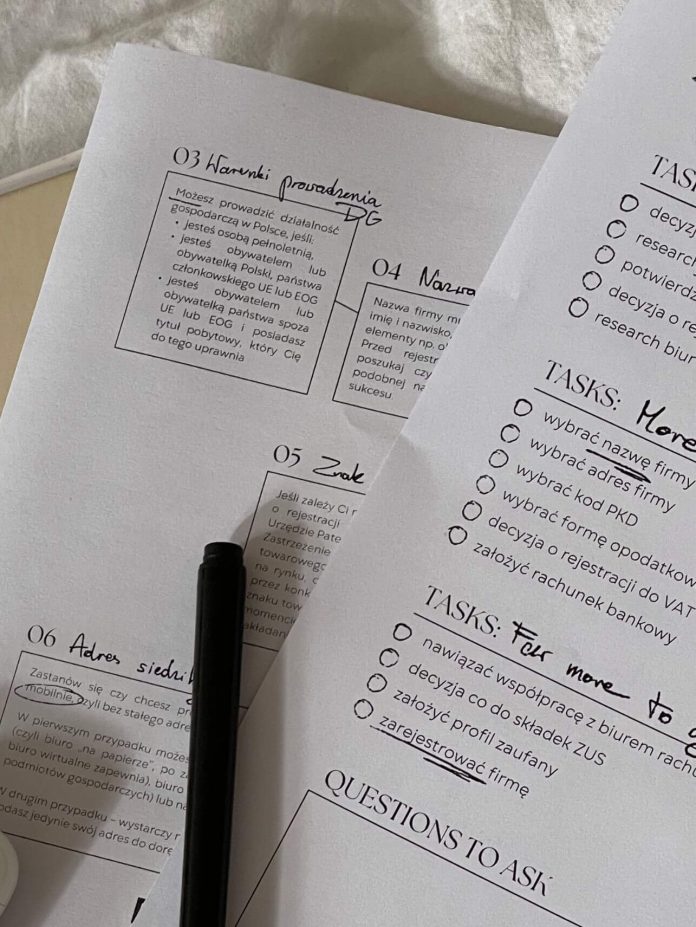 03 Warunki prowadzenia
DG
Możesz prowadzić działalność
gospodarczą w Polsce, jeśli:
• jesteś osobą pełnoletnią,
• jesteś obywatelem lub
obywatelką Polski, państwa
członkowskiego UE lub EOG
• jesteś obywatelem lub
obywatelką państwa spoza
UE lub EOG i posiadasz
tytuł pobytowy, który Cię
do tego uprawnia
04
Nazwa firmy
imię i nazwisko,
elementy np.
Przed
poszukaj czy
podobnej
sukcesu
05 Znak
Jeśli zależy Ci
o rejestracji
Urzędzie
Zastrzeżenie
towarowego
na rynku,
przez
znaku
06 Adres
Zastanów się czy chcesz
mobilnie, czyli bez stałego
W pierwszym przypadku
(czyli biuro „na papierze”, po
biuro wirtualne zapewnia), biuro
podmiotów gospodarczych) lub
drugim przypadku – wystarczy
jedynie swój adres do
research
decyzja o
research
TASKS: More
wybrać nazwę firmy
wybrać adres firmy
wybrać kod PKD
wybrać formę
decyzja o rejestracji do VAT
założyć rachunek bankowy
TASKS: more to
nawiązać współpracę z biurem
decyzja co do składek ZUS
założyć profil zaufany
zarejestrować firmę
QUESTIONS TO ASK